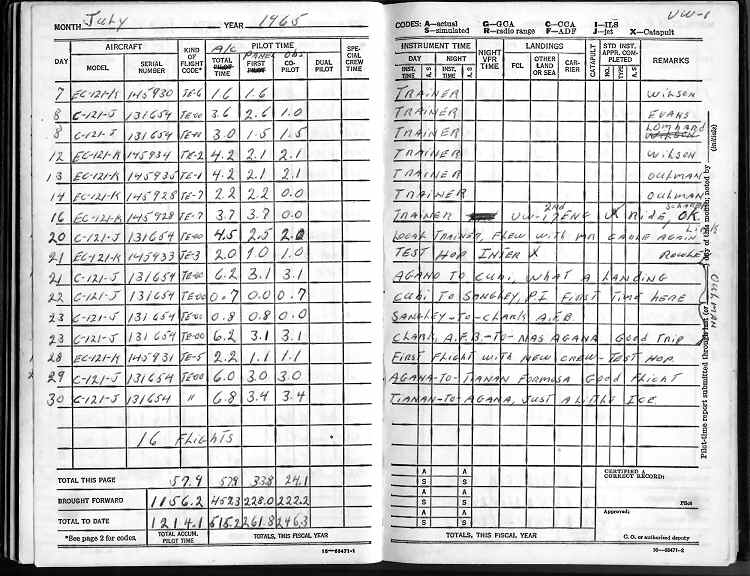 MONTH July YEAR 1965
AIRCRAFT KIND OF FLIGHT CODE* A/C PILOT TIME SPECIAL CREW TIME
DAY MODEL SERIAL NUMBER TOTAL PILOT TIME PANEL FIRST PILOT Obs. CO-PILOT DUAL PILOT
7 EC-121-K 145930 TE-6 1.6 1.6
8 C-121-J 131654 TE-00 3.6 2.6 1.0
8 C-121-J 131654 TE-00 3.0 1.5 1.5
12 EC-121-K 145934 TE-2 4.2 2.1 2.1
13 EC-121-K 145935 TE-1 4.2 2.1 2.1
14 EC-121-K 145928 TE-7 2.2 2.2 0.0
16 EC-121-K 145928 TE-7 3.7 3.7 0.0
20 C-121-J 131654 TE-00 4.5 2.5 2.0
21 EC-121-K 145933 TE-3 2.0 1.0 1.0
21 C-121-J 131654 TE-00 6.2 3.1 3.1
22 C-121-J 131654 TE-00 0.7 0.0 0.7
23 C-121-J 131654 TE-00 0.8 0.8 0.0
23 C-121-J 131654 TE-00 6.2 3.1 3.1
28 EC-121-K 145931 TE-5 2.2 1.1 1.1
29 C-121-J 131654 TE-00 6.0 3.0 3.0
30 C-121-J 131654 " 6.8 3.4 3.4
16 Flights
TOTAL THIS PAGE 57.9 57.9 33.8 24.1
BROUGHT FORWARD 1156.2 228.0 222.2
TOTAL TO DATE 1214.1 515.2 261.8 246.3
*See page 2 for codes. TOTAL ACCUM. PILOT TIME TOTALS, THIS FISCAL YEAR
16—60471-1
CODES: A—actual G—GCA C—CCA I—ILS
S—simulated R—radio range F—ADF J—Jet X—Catapult
VW-1
INSTRUMENT TIME NIGHT VFR TIME LANDINGS CATAPULT STD INST. APPR. COMPLETED REMARKS
DAY NIGHT FCL OTHER LAND OR SEA CARRIER
INST. TIME A S INST. TIME A S NO. TYPE A S
TRAINER WILSON
TRAINER EVANS
TRAINER LOMBARD WILSON
TRAINER WILSON
TRAINER OULMAN
TRAINER OULMAN
TRAINER VW-1 2nd ENG X Ride, OK.
LOCAL TRAINER, FLEW WITH MR CAGLE AGAIN
TEST HOP INTER X
AGANO TO CUBI, WHAT A LANDING
CUBI TO SANGLEY, P.I FIRST TIME HERE
SANGLEY-TO-CLARK A.F.B
CLARK, A.F.B.-TO-NAS AGANA Good TRIP
FIRST FLIGHT WITH NEW CREW-TEST HOP
AGANA-TO-TIANAN FORMOSA Good Flight
TIANAN-TO-AGANA, JUST A LITTLE ICE
OULMAN
Pilot-time report submitted through last (or day of this month; noted by (initials)
A A
S S
A A
S S
A A
S S
CERTIFIED A CORRECT RECORD:
Pilot
Approved:
C. O. or authorized deputy
TOTALS, THIS FISCAL YEAR
16—60471-2